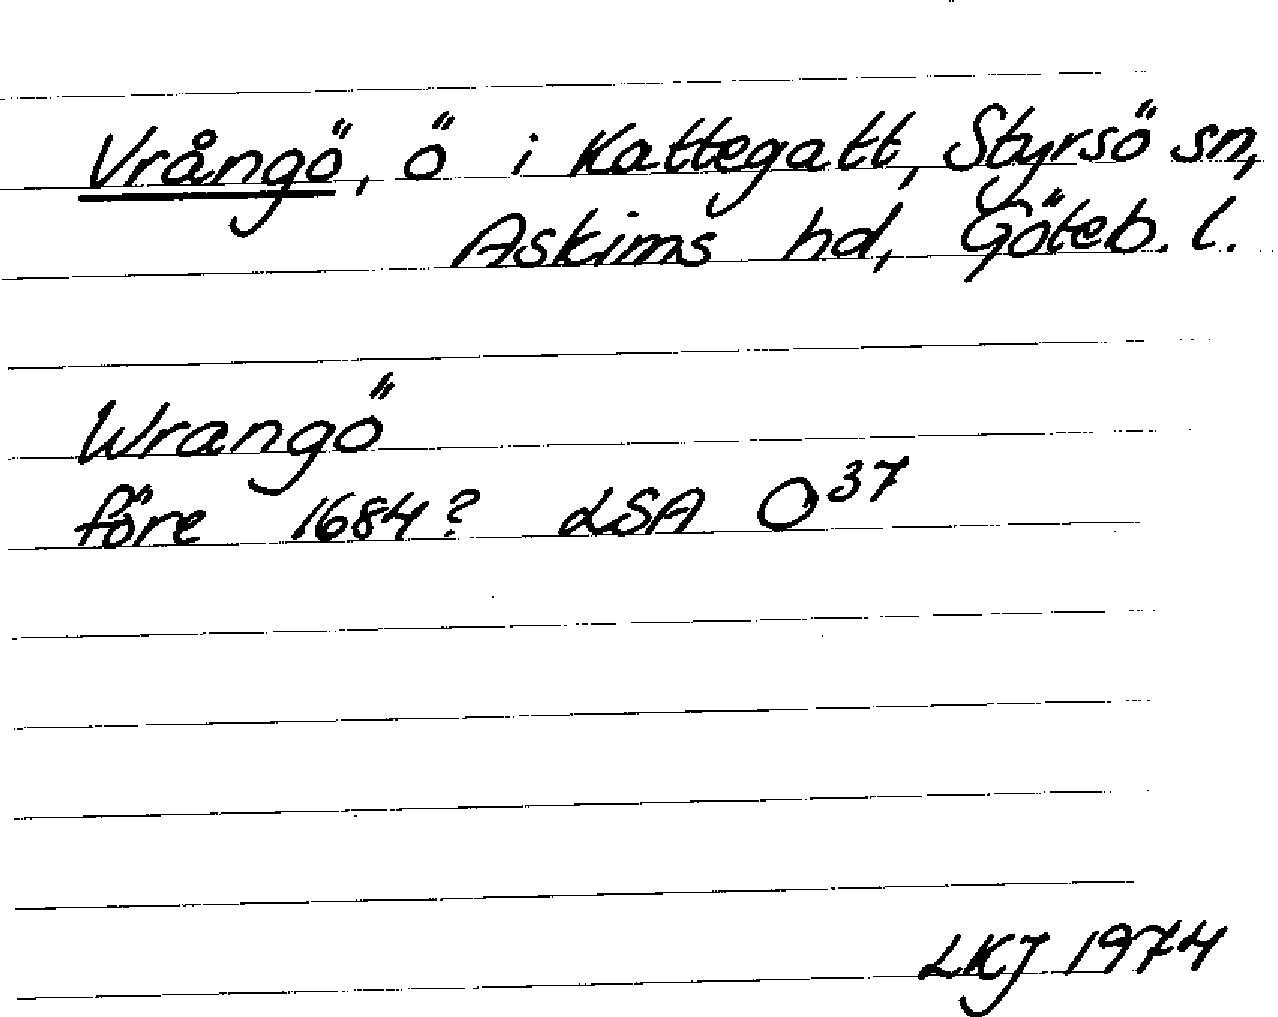 Vrångö, ö i Kattegatt, Styrsö sn,
Askims hd, Göteb. l.
Wrangö
före 1684? LSA O³⁷
LKJ 1974